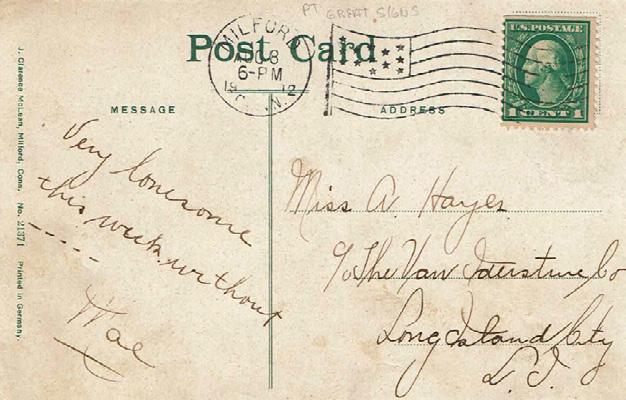 PT GREAT SIGNS
Post Card
MILFORD
AUG 8
6-PM
1912
CONN.
U.S. POSTAGE
1 CENT 1
MESSAGE
ADDRESS
Very lonesome
this week without
- - - - -
Miss A. Hayes
c/o The Van Co
Long Island City
L.I.
J. Clarence McLean, Milford, Conn. No. 21371 Printed in Germany.